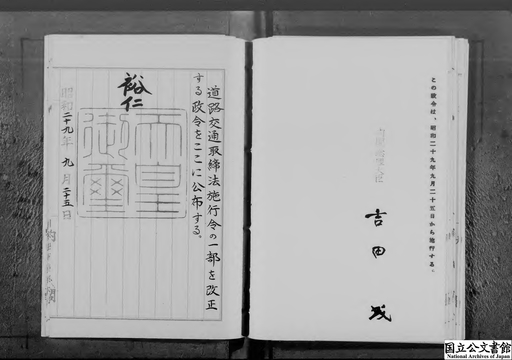 この政令は、昭和二十九年九月二十五日から施行する。
吉田茂
道路交通取締法施行令の一部を改正
する政令をここに公布する。
裕仁
天皇
御璽
昭和二十九年九月二十五日
国立公文書館
National Archives of Japan